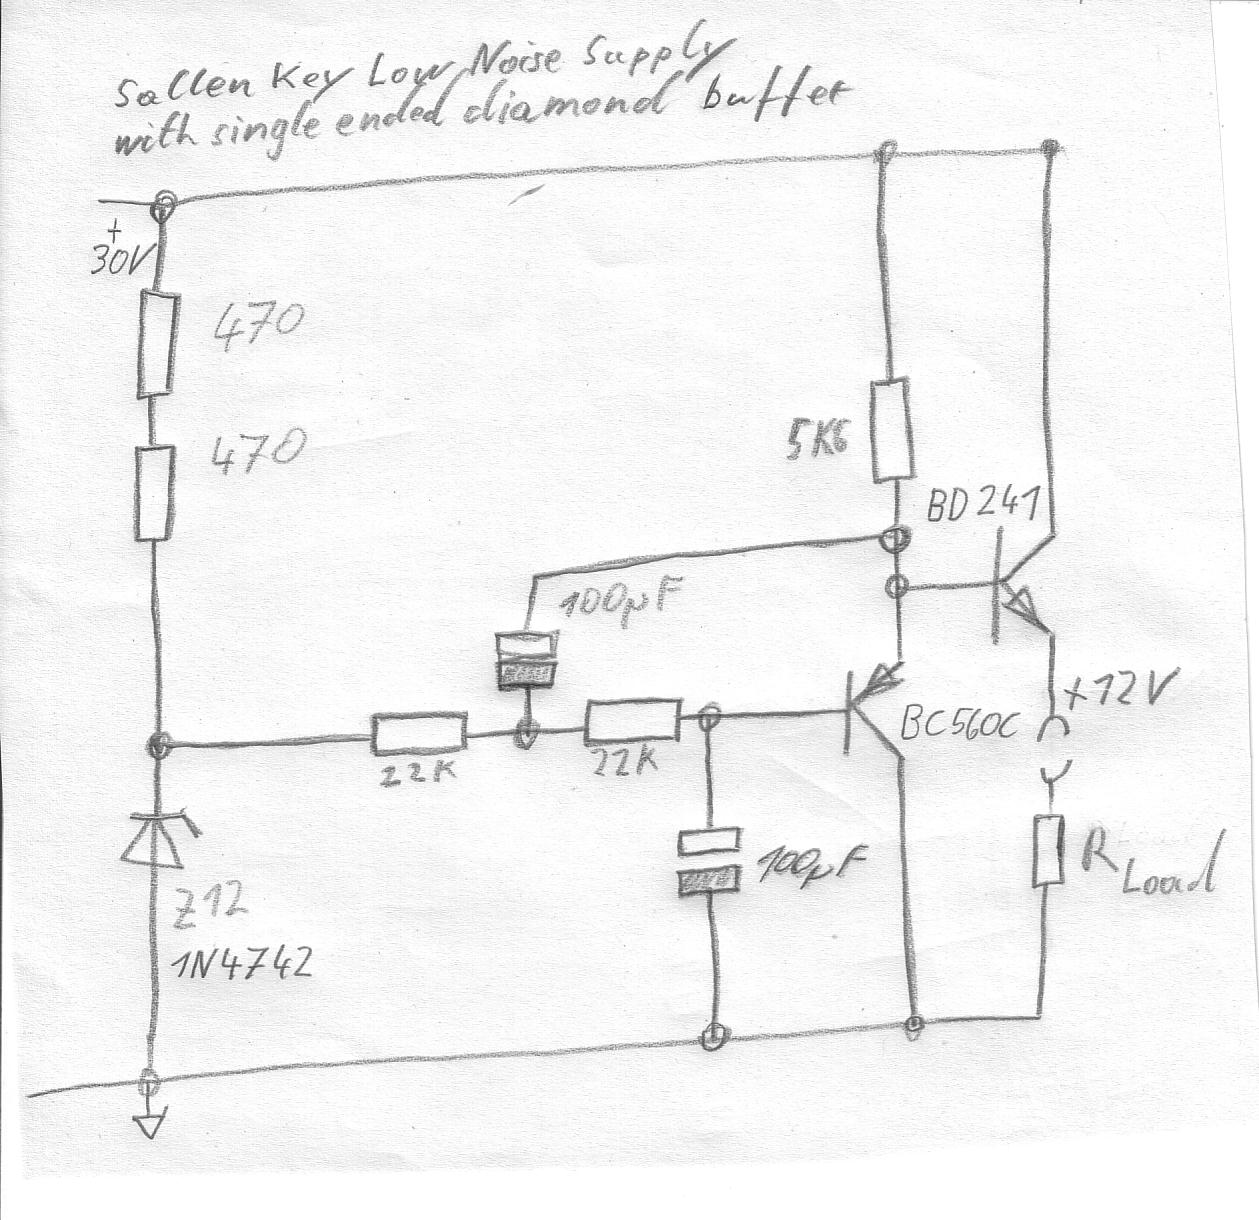 Sallen Key Low Noise Supply
with single ended diamond buffer
+
30V
470
470
5K6
BD241
100µF
+12V
22K
22K
BC560C
100µF
RLoad
Z12
1N4742